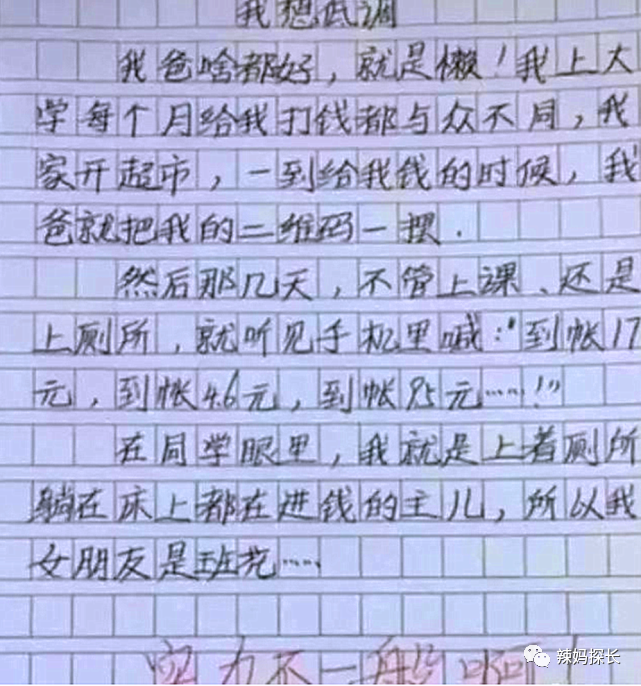 我想低调
我爸啥都好，就是懒！我上大
学每个月给我打钱都与众不同，我
家开超市，一到给我钱的时候，我
爸就把我的二维码一摆.
然后那几天，不管上课、还是
上厕所，就听见手机里喊："到帐17
元，到帐4.6元，到帐95元……！"
在同学眼里，我就是上着厕所
躺在床上都在进钱的主儿，所以我
女朋友是班花……
实力不一般
辣妈探长